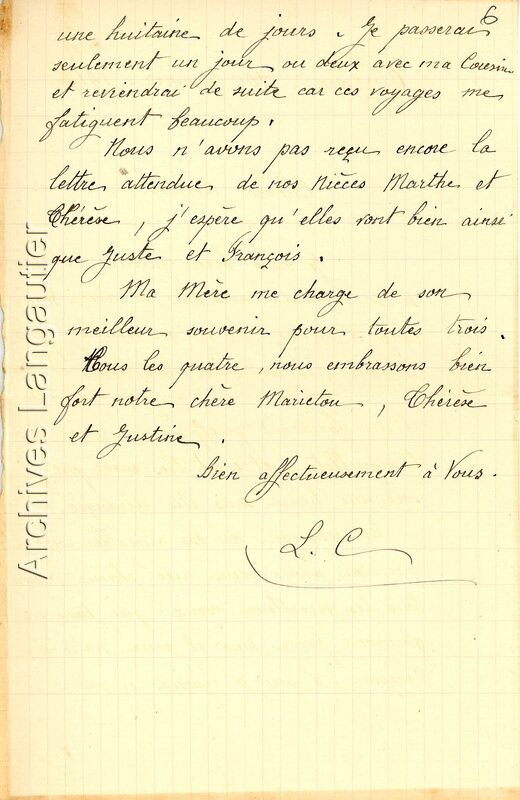 6
une huitaine de jours. Je passerai
seulement un jour ou deux avec ma Cousine
et reviendrai de suite car ces voyages me
fatiguent beaucoup.
Nous n'avons pas reçu encore la
lettre attendue de nos Nièces Marthe et
Thérèse, j'espère qu'elles vont bien ainsi
que Juste et François.
Ma Mère me charge de son
meilleur souvenir pour toutes trois.
Tous les quatre, nous embrassons bien
fort notre chère Marietou, Thérèse
et Justine.
Bien affectueusement à Vous.
L. C
Archives Langautier